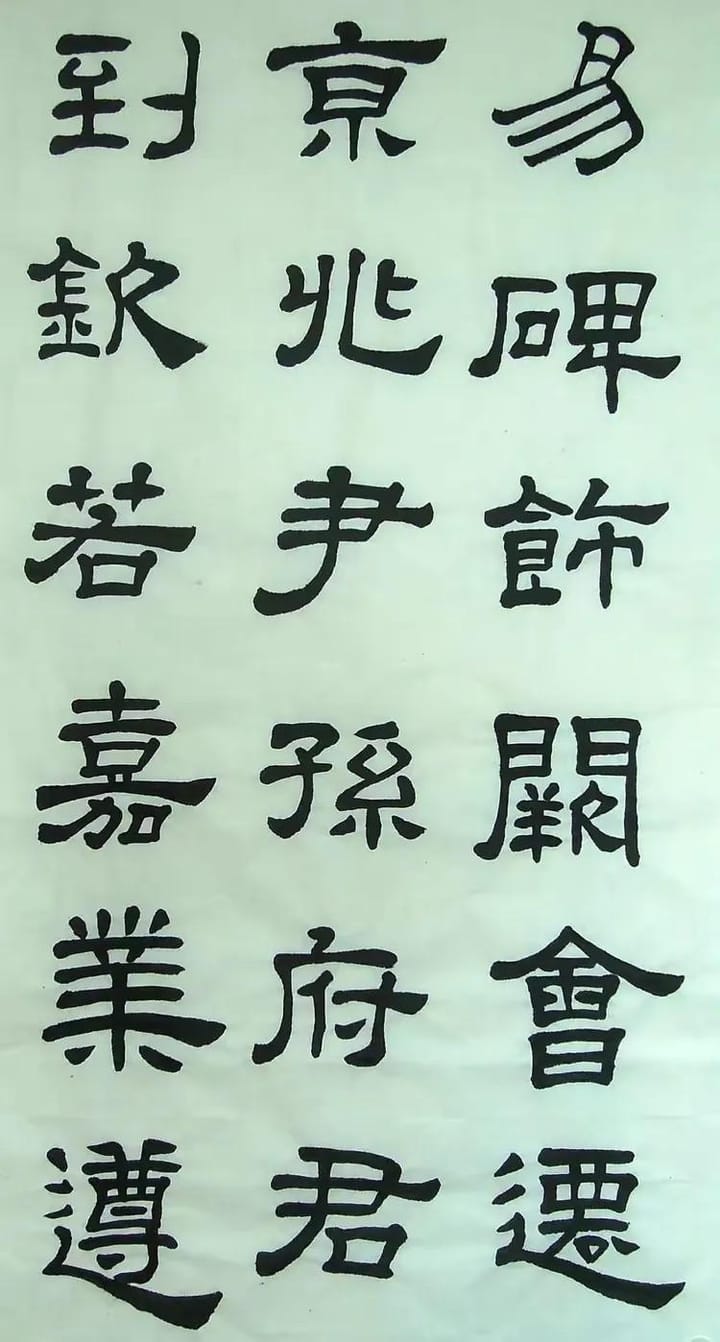 易碑飾闕會遷
京兆尹孫府君
到欽若嘉業遵